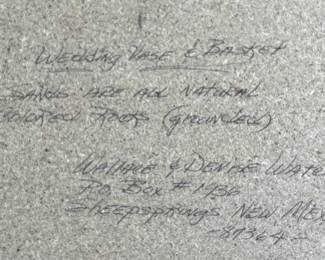 Wedding Vase & Basket
Sands are all natural
colored rocks (grounded)
Wallace & Denise Wat
P.O. Box # 1936
Sheepsprings New Mex
-87364-